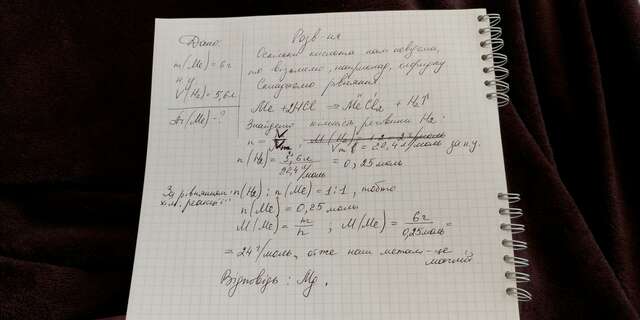 Дано:
m(Me) = 6г
н.у
V(H₂) = 5,6л
Ar(Me) - ?
Розв-ня
Оскільки кислота нам невідома,
то візьмемо, наприклад, хлоридну
Складаємо рівняння
Me + 2HCl = MeCl₂ + H₂↑
Знайдемо кількість речовини H₂:
n = V/Vm, M(H₂) = 1·2 = 2 г/моль
Vm = 22,4 л/моль за н.у.
n(H₂) = 5,6л / 22,4 л/моль = 0,25 моль
За рівнянням
хім. реакції: n(H₂) : n(Me) = 1:1, тобто
n(Me) = 0,25 моль
M(Me) = m/n ; M(Me) = 6г / 0,25моль =
= 24 г/моль, отже наш метал - це
магній
Відповідь: Mg.